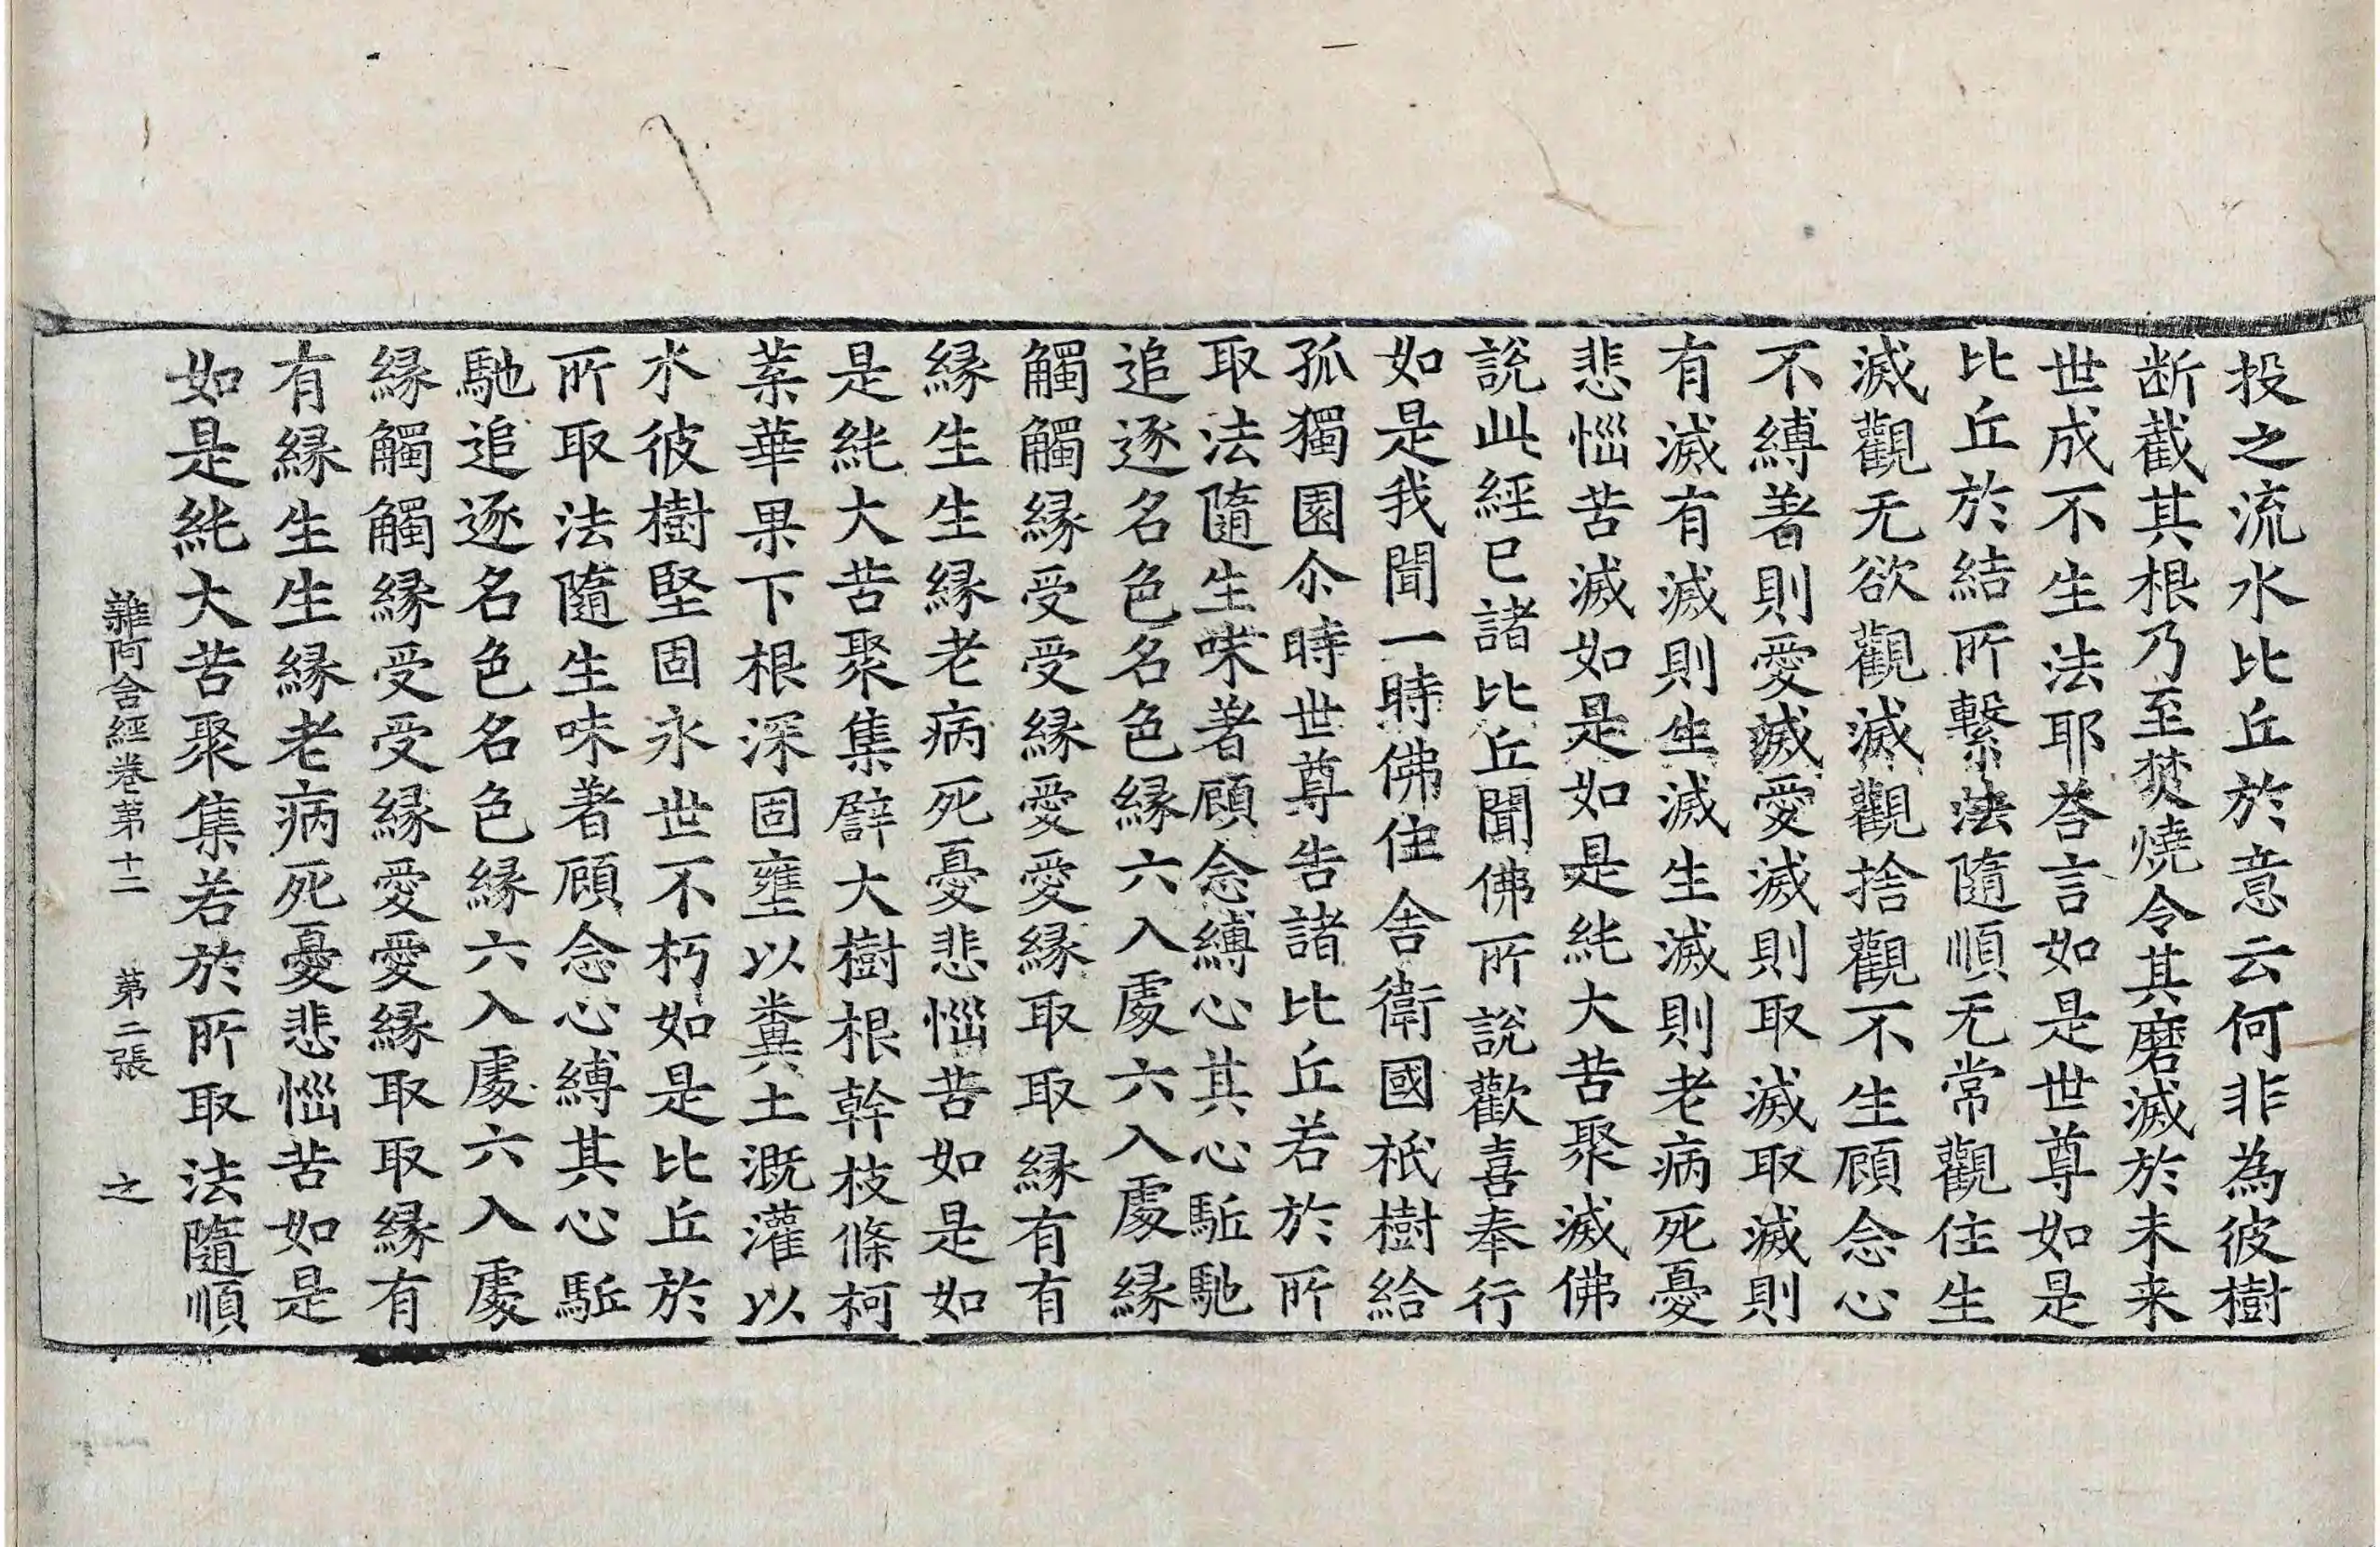 投之流水比丘於意云何非為彼樹
断截其根乃至焚燒令其磨滅於未来
世成不生法耶荅言如是世尊如是
比丘於結所繫法隨順无常觀住生
滅觀无欲觀滅觀捨觀不生顧念心
不縛著則愛滅愛滅則取滅取滅則
有滅有滅則生滅生滅則老病死憂
悲惱苦滅如是如是純大苦聚滅佛
說此經已諸比丘聞佛所說歡喜奉行
如是我聞一時佛住舍衛國祇樹給
孤獨園尒時世尊告諸比丘若於所
取法隨生味著顧念縛心其心駈馳
追逐名色名色緣六入處六入處緣
觸觸緣受受緣愛愛緣取取緣有有
緣生生緣老病死憂悲惱苦如是如
是純大苦聚集譬大樹根幹枝條柯
葉華果下根深固壅以糞土溉灌以
水彼樹堅固永世不朽如是比丘於
所取法隨生味著顧念心縛其心駈
馳追逐名色名色緣六入處六入處
緣觸觸緣受受緣愛愛緣取取緣有
有緣生生緣老病死憂悲惱苦如是
如是純大苦聚集若於所取法隨順
雜阿含經卷第十二 第二張 之